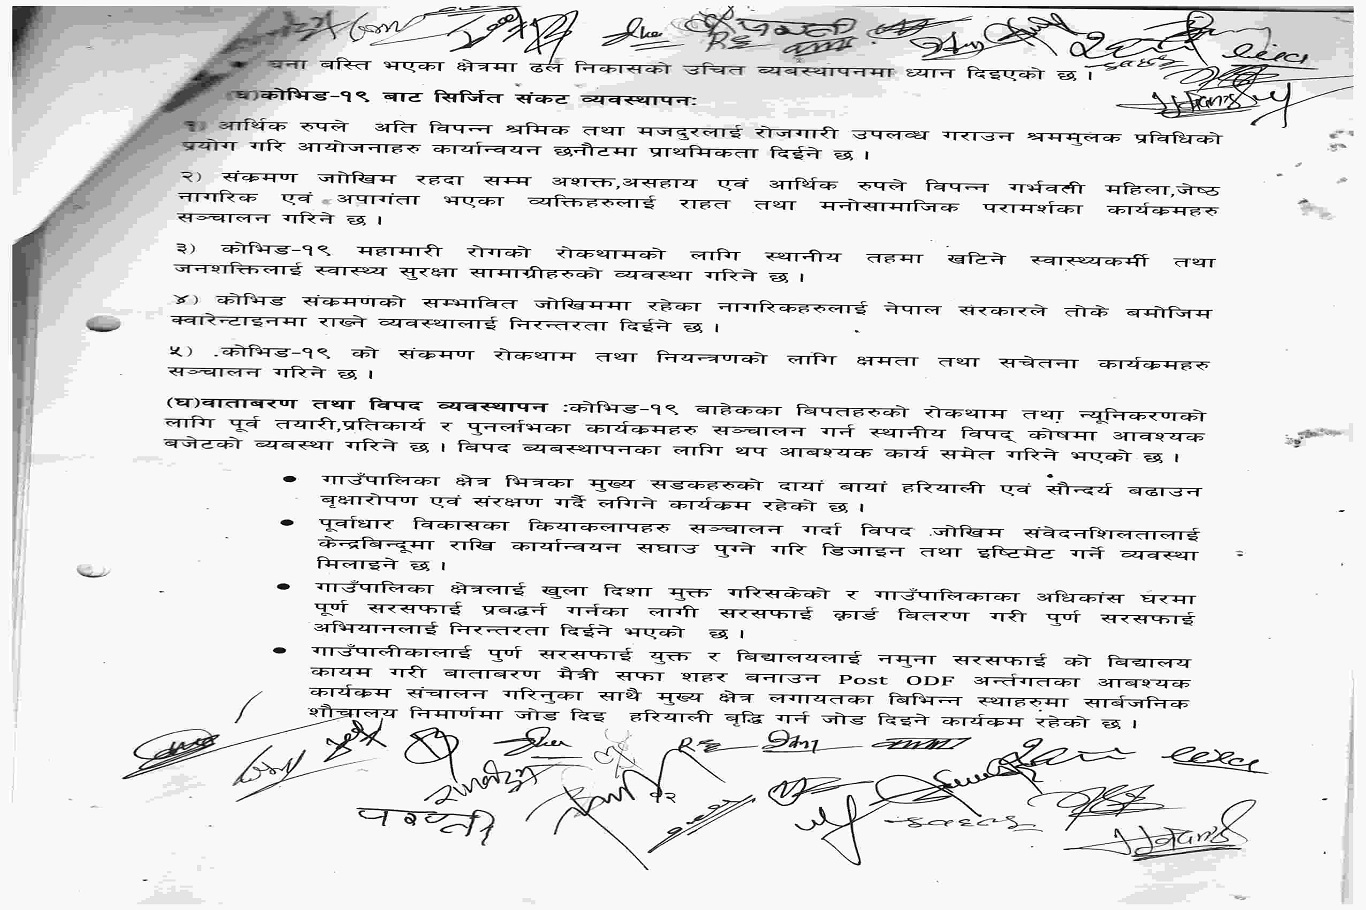 घना बस्ति भएका क्षेत्रमा ढल निकासको उचित व्यवस्थापनमा ध्यान दिइएको छ ।
(घ)कोभिड-१९ बाट सिर्जित संकट व्यवस्थापनः
१) आर्थिक रुपले अति विपन्न श्रमिक तथा मजदुरलाई रोजगारी उपलव्ध गराउन श्रममुलक प्रविधिको
प्रयोग गरि आयोजनाहरु कार्यान्वयन छनौटमा प्राथमिकता दिईने छ ।
२) संक्रमण जोखिम रहदा सम्म अशक्त,असहाय एवं आर्थिक रुपले विपन्न गर्भवती महिला,जेष्ठ
नागरिक एवं अपागंता भएका व्यक्तिहरुलाई राहत तथा मनोसामाजिक परामर्शका कार्यक्रमहरु
सञ्चालन गरिने छ ।
३) कोभिड-१९ महामारी रोगको रोकथामको लागि स्थानीय तहमा खटिने स्वास्थ्यकर्मी तथा
जनशक्तिलाई स्वास्थ्य सुरक्षा सामाग्रीहरुको व्यवस्था गरिने छ ।
४) कोभिड संक्रमणको सम्भावित जोखिममा रहेका नागरिकहरुलाई नेपाल सरकारले तोके बमोजिम
क्वारेन्टाइनमा राख्ने व्यवस्थालाई निरन्तरता दिईने छ ।
५) .कोभिड-१९ को संक्रमण रोकथाम तथा नियन्त्रणको लागि क्षमता तथा सचेतना कार्यक्रमहरु
सञ्चालन गरिने छ ।
(घ)वाताबरण तथा विपद व्यवस्थापन :कोभिड-१९ बाहेकका बिपतहरुको रोकथाम तथा न्यूनिकरणको
लागि पूर्व तयारी,प्रतिकार्य र पुनर्लाभका कार्यक्रमहरु सञ्चालन गर्न स्थानीय विपद् कोषमा आवश्यक
बजेटको व्यबस्था गरिने छ । बिपद ब्यबस्थापनका लागि थप आबश्यक कार्य समेत गरिने भएको छ ।
● गाउँपालिका क्षेत्र भित्रका मुख्य सडकहरुको दायां बायां हरियाली एवं सौन्दर्य बढाउन
बृक्षारोपण एवं संरक्षण गर्दै लगिने कार्यक्रम रहेको छ ।
● पूर्वाधार विकासका क्रियाकलापहरु सञ्चालन गर्दा विपद जोखिम संवेदनशिलतालाई
केन्द्रबिन्दूमा राखि कार्यान्वयन सघाउ पुग्ने गरि डिजाइन तथा इष्टिमेट गर्ने व्यवस्था
मिलाइने छ ।
● गाउँपालिका क्षेत्रलाई खुला दिशा मुक्त गरिसकेको र गाउँपालिकाका अधिकांस घरमा
पूर्ण सरसफाई प्रबद्धर्न गर्नका लागी सरसफाई कार्ड बितरण गरी पुर्ण सरसफाई
अभियानलाई निरन्तरता दिईने भएको छ ।
● गाउँपालीकालाई पुर्ण सरसफाई युक्त र बिद्यालयलाई नमुना सरसफाई को बिद्यालय
कायम गरी बाताबरण मैत्री सफा शहर बनाउन Post ODF अर्न्तगतका आबश्यक
कार्यक्रम संचालन गरिनुका साथै मुख्य क्षेत्र लगायतका बिभिन्न स्थाहरुमा सार्बजनिक
शौचालय निमार्णमा जोड दिइ हरियाली बृद्धि गर्न जोड दिइने कार्यक्रम रहेको छ ।
१२